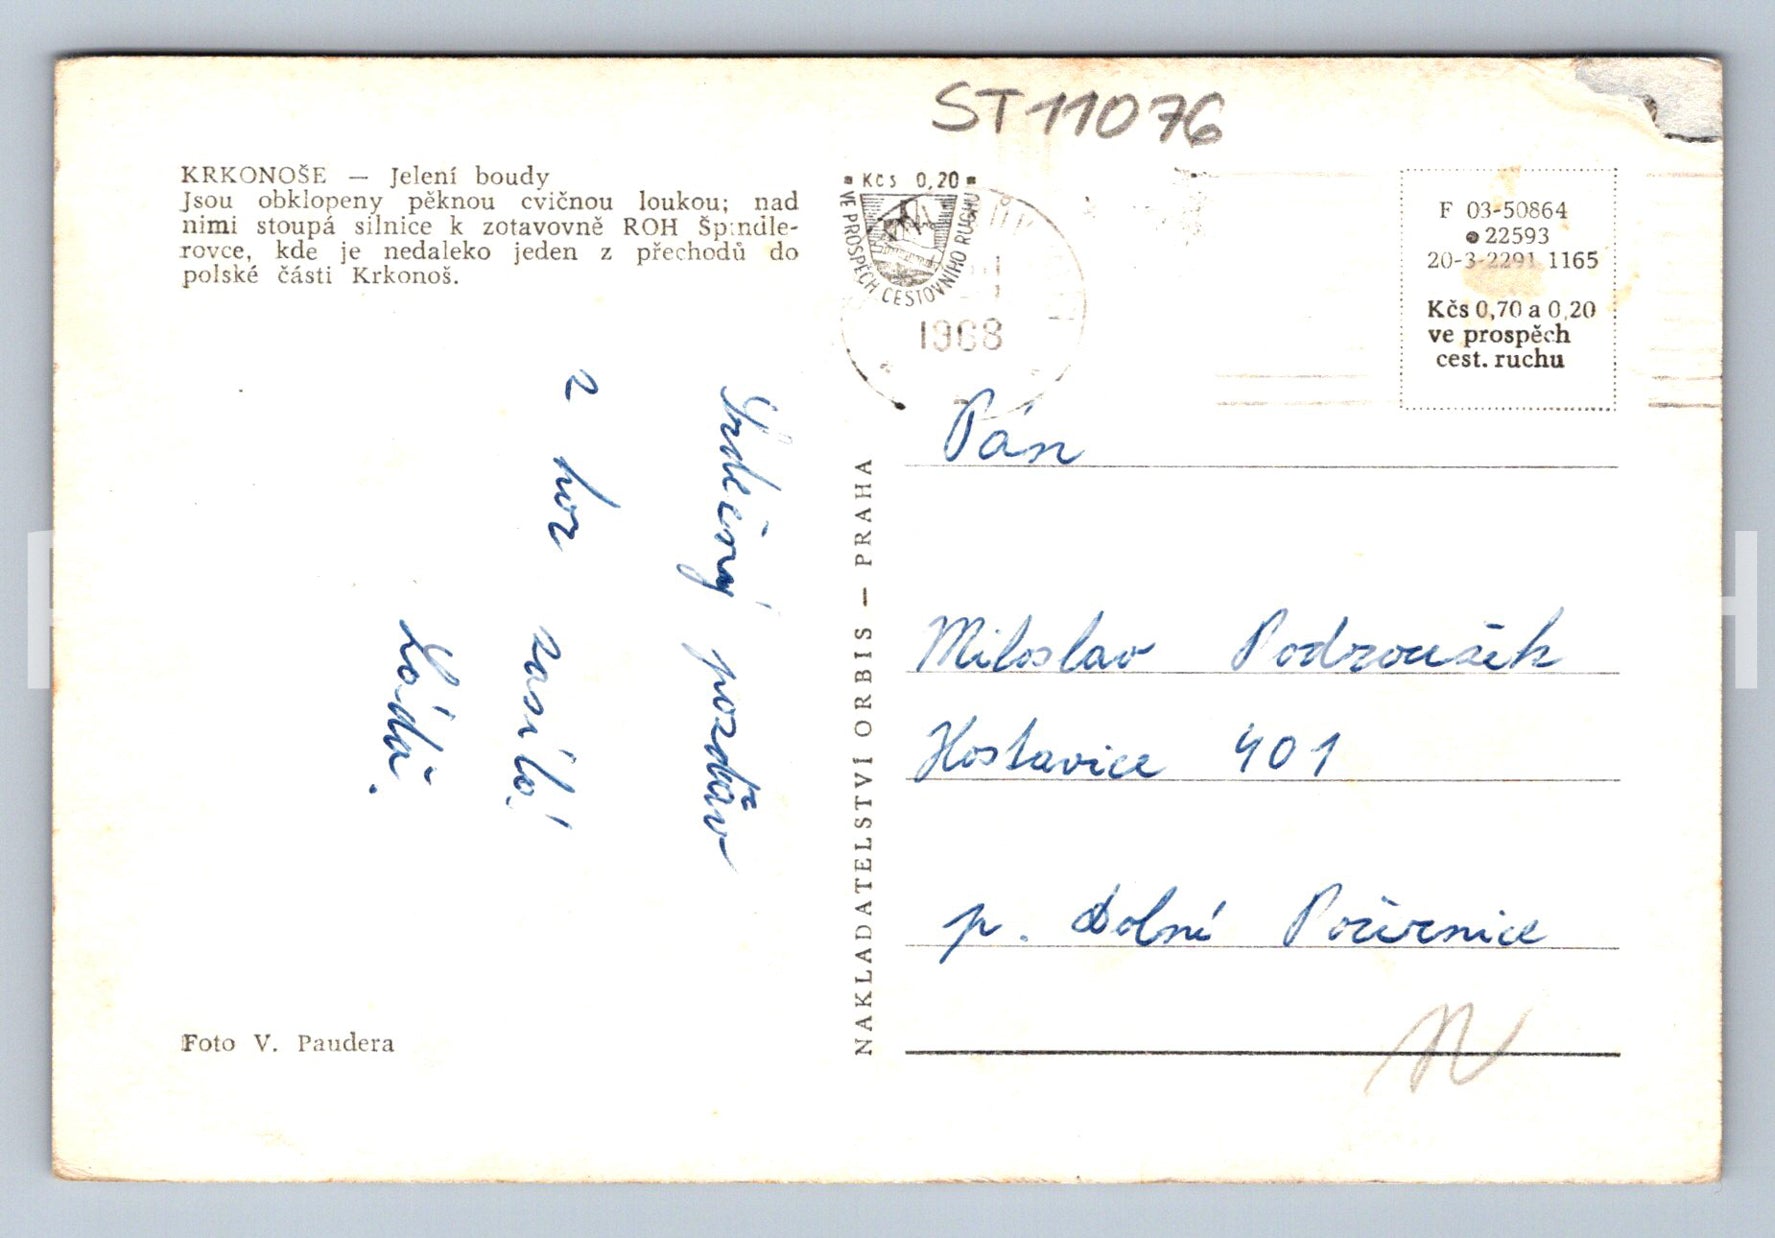 ST 11076
KRKONOŠE — Jelení boudy
Jsou obklopeny pěknou cvičnou loukou; nad
nimi stoupá silnice k zotavovně ROH Špindle-
rovce, kde je nedaleko jeden z přechodů do
polské části Krkonoš.
Kčs 0,20
VE PROSPĚCH CESTOVNÍHO RUCHU
1968
F 03-50864
22593
20-3-2291 1165
Kčs 0,70 a 0,20
ve prospěch
cest. ruchu
Srdečný pozdrav
z hor zasílá
Láďa.
NAKLADATELSTVÍ ORBIS — PRAHA
Pán
Miloslav Podroužek
Hostavice 401
p. Dolní Počernice
Foto V. Paudera